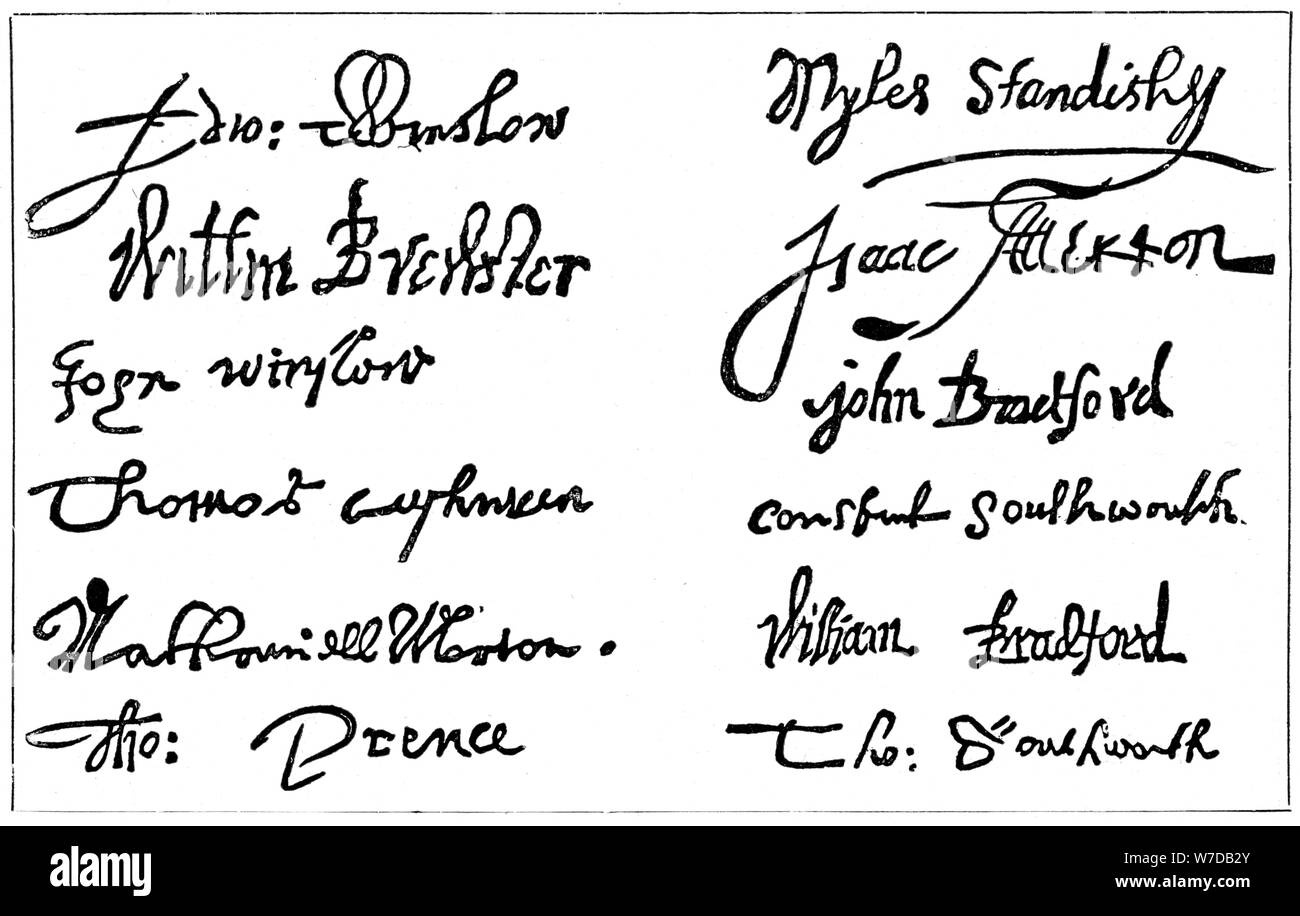 Edw: Winslow
Willm Brewster
John winslow
Thomas Cushman
Nathaniell Morton.
Tho: Prence
Myles Standish
Isaac Allerton
john Bradford
Constant Southworth.
William Bradford
Tho: Southworth
alamy
Image ID: W7DB2Y
www.alamy.com